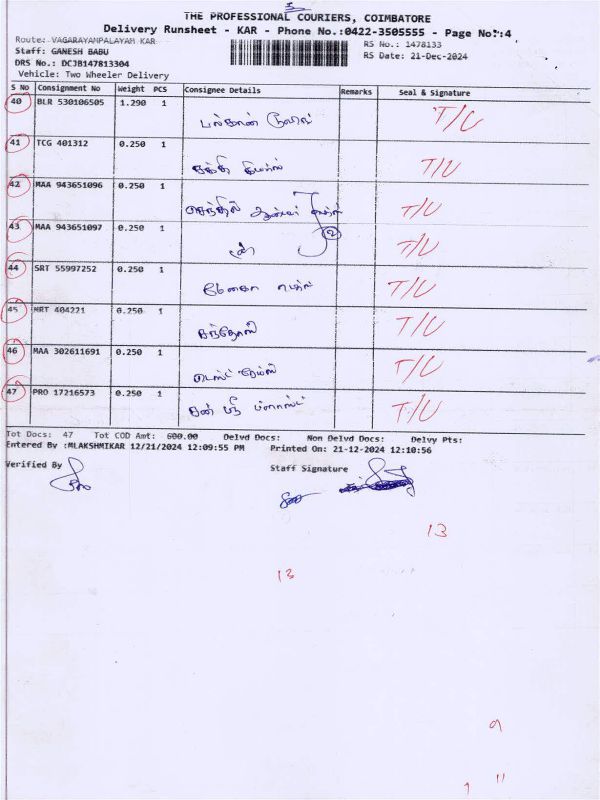 THE PROFESSIONAL COURIERS, COIMBATORE
Delivery Runsheet - KAR - Phone No.:0422-3505555 - Page No:4
Route: VAGARAYAMPALAYAM KAR
RS No.: 1478133
Staff: GANESH BABU
RS Date: 21-Dec-2024
DRS No.: DCJB147813304
Vehicle: Two Wheeler Delivery
S No Consignment No Weight PCS Consignee Details Remarks Seal & Signature
40 BLR 530106505 1.290 1 T/U
41 TCG 401312 0.250 1 T/U
42 MAA 943651096 0.250 1 செந்தில் T/U
43 MAA 943651097 0.250 1 2 T/U
44 SRT 55997252 0.250 1 மேனகா T/U
45 MRT 404221 0.250 1 சந்தோஸ் T/U
46 MAA 302611691 0.250 1 T/U
47 PRO 17216573 0.250 1 சன் ஸ்ரீ T/U
Tot Docs: 47 Tot COD Amt: 600.00 Delvd Docs: Non Delvd Docs: Delvy Pts:
Entered By :MLAKSHMIKAR 12/21/2024 12:09:55 PM Printed On: 21-12-2024 12:10:56
Verified By
Staff Signature
13
13
9
1 11